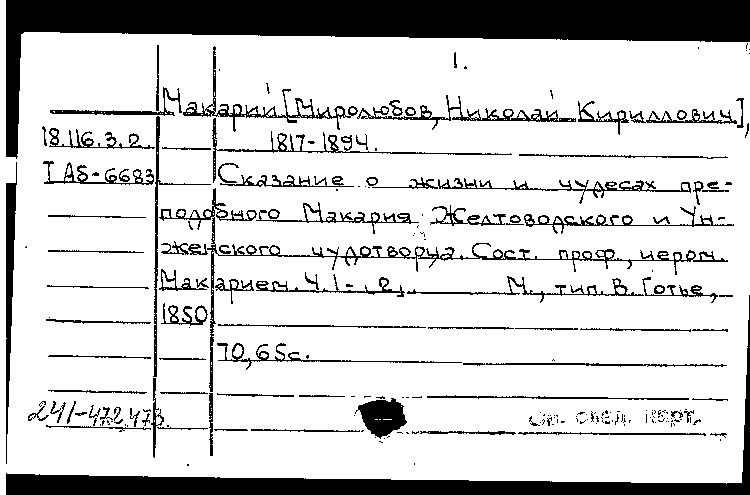 1.
Макарий [Миролюбов, Николай Кириллович],
18.116.3.2. 1817-1894.
I AБ-6683 Сказание о жизни и чудесах пре-
подобного Макария Желтоводского и Ун-
женского чудотворца. Сост. проф., иером.
Макарием. Ч. 1-,2,. М., тип. В. Готье,
1850
70,65с.
241-472,473. См. след. карт.